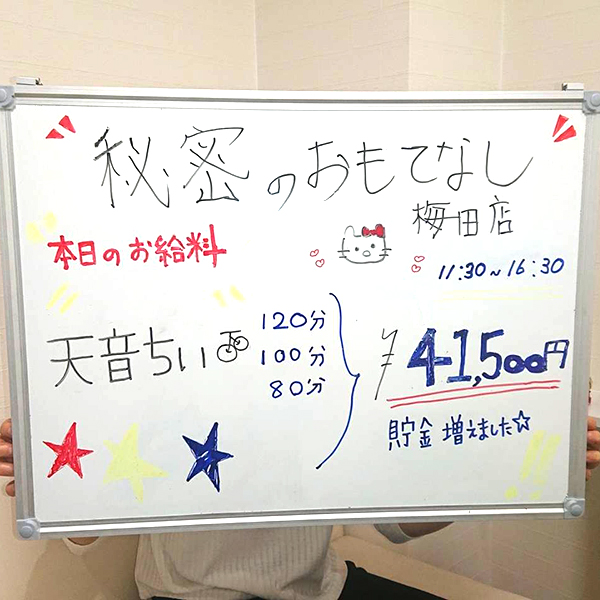 秘密のおもてなし
梅田店
本日のお給料
11:30~16:30
天音ちい
120分
100分
80分
¥41,500円
貯金増えました☆
!!